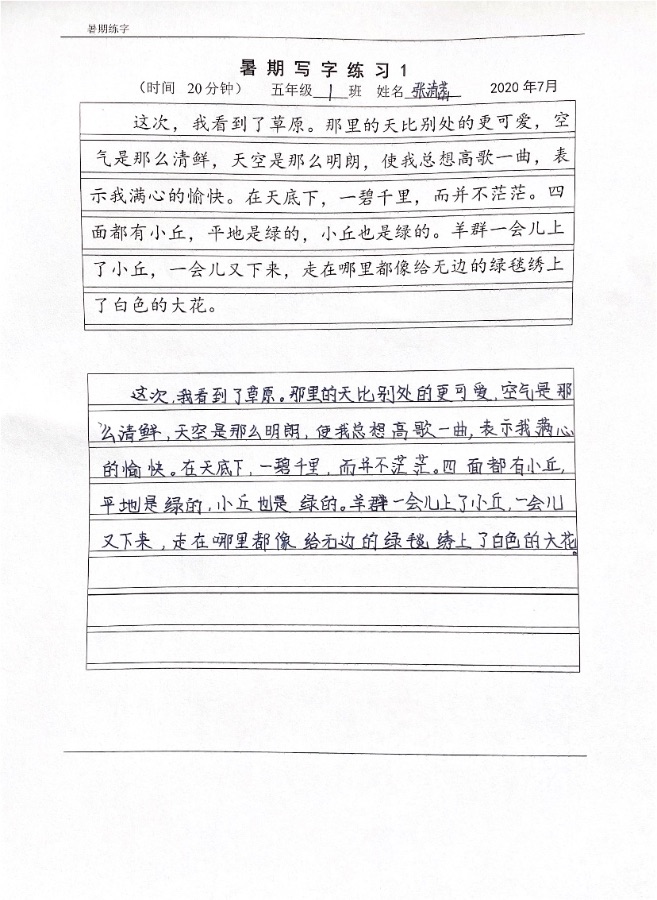 暑期练字
暑期写字练习1
（时间 20分钟） 五年级 1 班 姓名 张清 2020年7月
这次，我看到了草原。那里的天比别处的更可爱，空
气是那么清鲜，天空是那么明朗，使我总想高歌一曲，表
示我满心的愉快。在天底下，一碧千里，而并不茫茫。四
面都有小丘，平地是绿的，小丘也是绿的。羊群一会儿上
了小丘，一会儿又下来，走在哪里都像给无边的绿毯绣上
了白色的大花。
这次，我看到了草原。那里的天比别处的更可爱，空气是那
么清鲜，天空是那么明朗，使我总想高歌一曲，表示我满心
的愉快。在天底下，一碧千里，而并不茫茫。四面都有小丘，
平地是绿的，小丘也是绿的。羊群一会儿上了小丘，一会儿
又下来，走在哪里都像给无边的绿毯绣上了白色的大花。